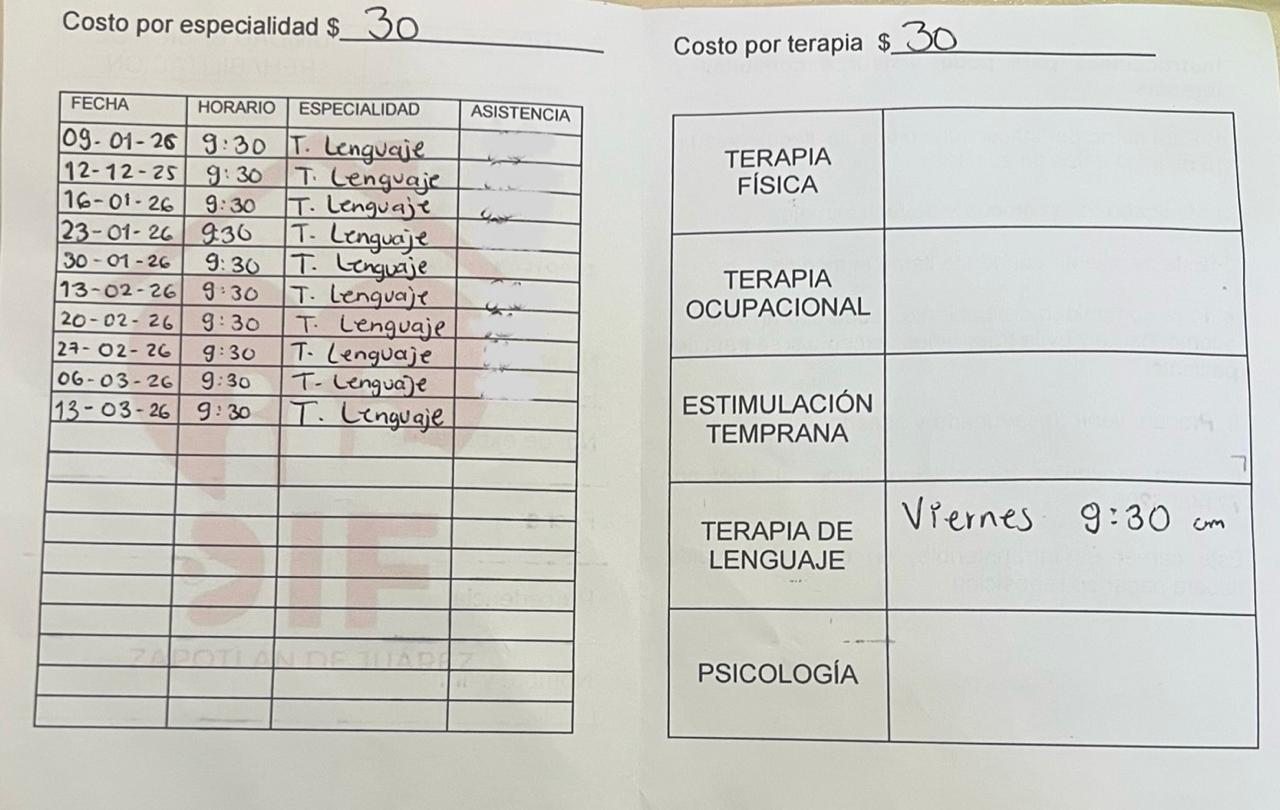 Costo por especialidad $ 30
FECHA HORARIO ESPECIALIDAD ASISTENCIA
09-01-26 9:30 T. Lenguaje
12-12-25 9:30 T. Lenguaje
16-01-26 9:30 T. Lenguaje
23-01-26 9:30 T. Lenguaje
30-01-26 9:30 T. Lenguaje
13-02-26 9:30 T. Lenguaje
20-02-26 9:30 T. Lenguaje
27-02-26 9:30 T. Lenguaje
06-03-26 9:30 T- Lenguaje
13-03-26 9:30 T. Lenguaje
DIF
ZAPOTLÁN DE JUÁREZ
Costo por terapia $ 30
TERAPIA
FÍSICA
TERAPIA
OCUPACIONAL
ESTIMULACIÓN
TEMPRANA
TERAPIA DE
LENGUAJE
Viernes 9:30 am
PSICOLOGÍA